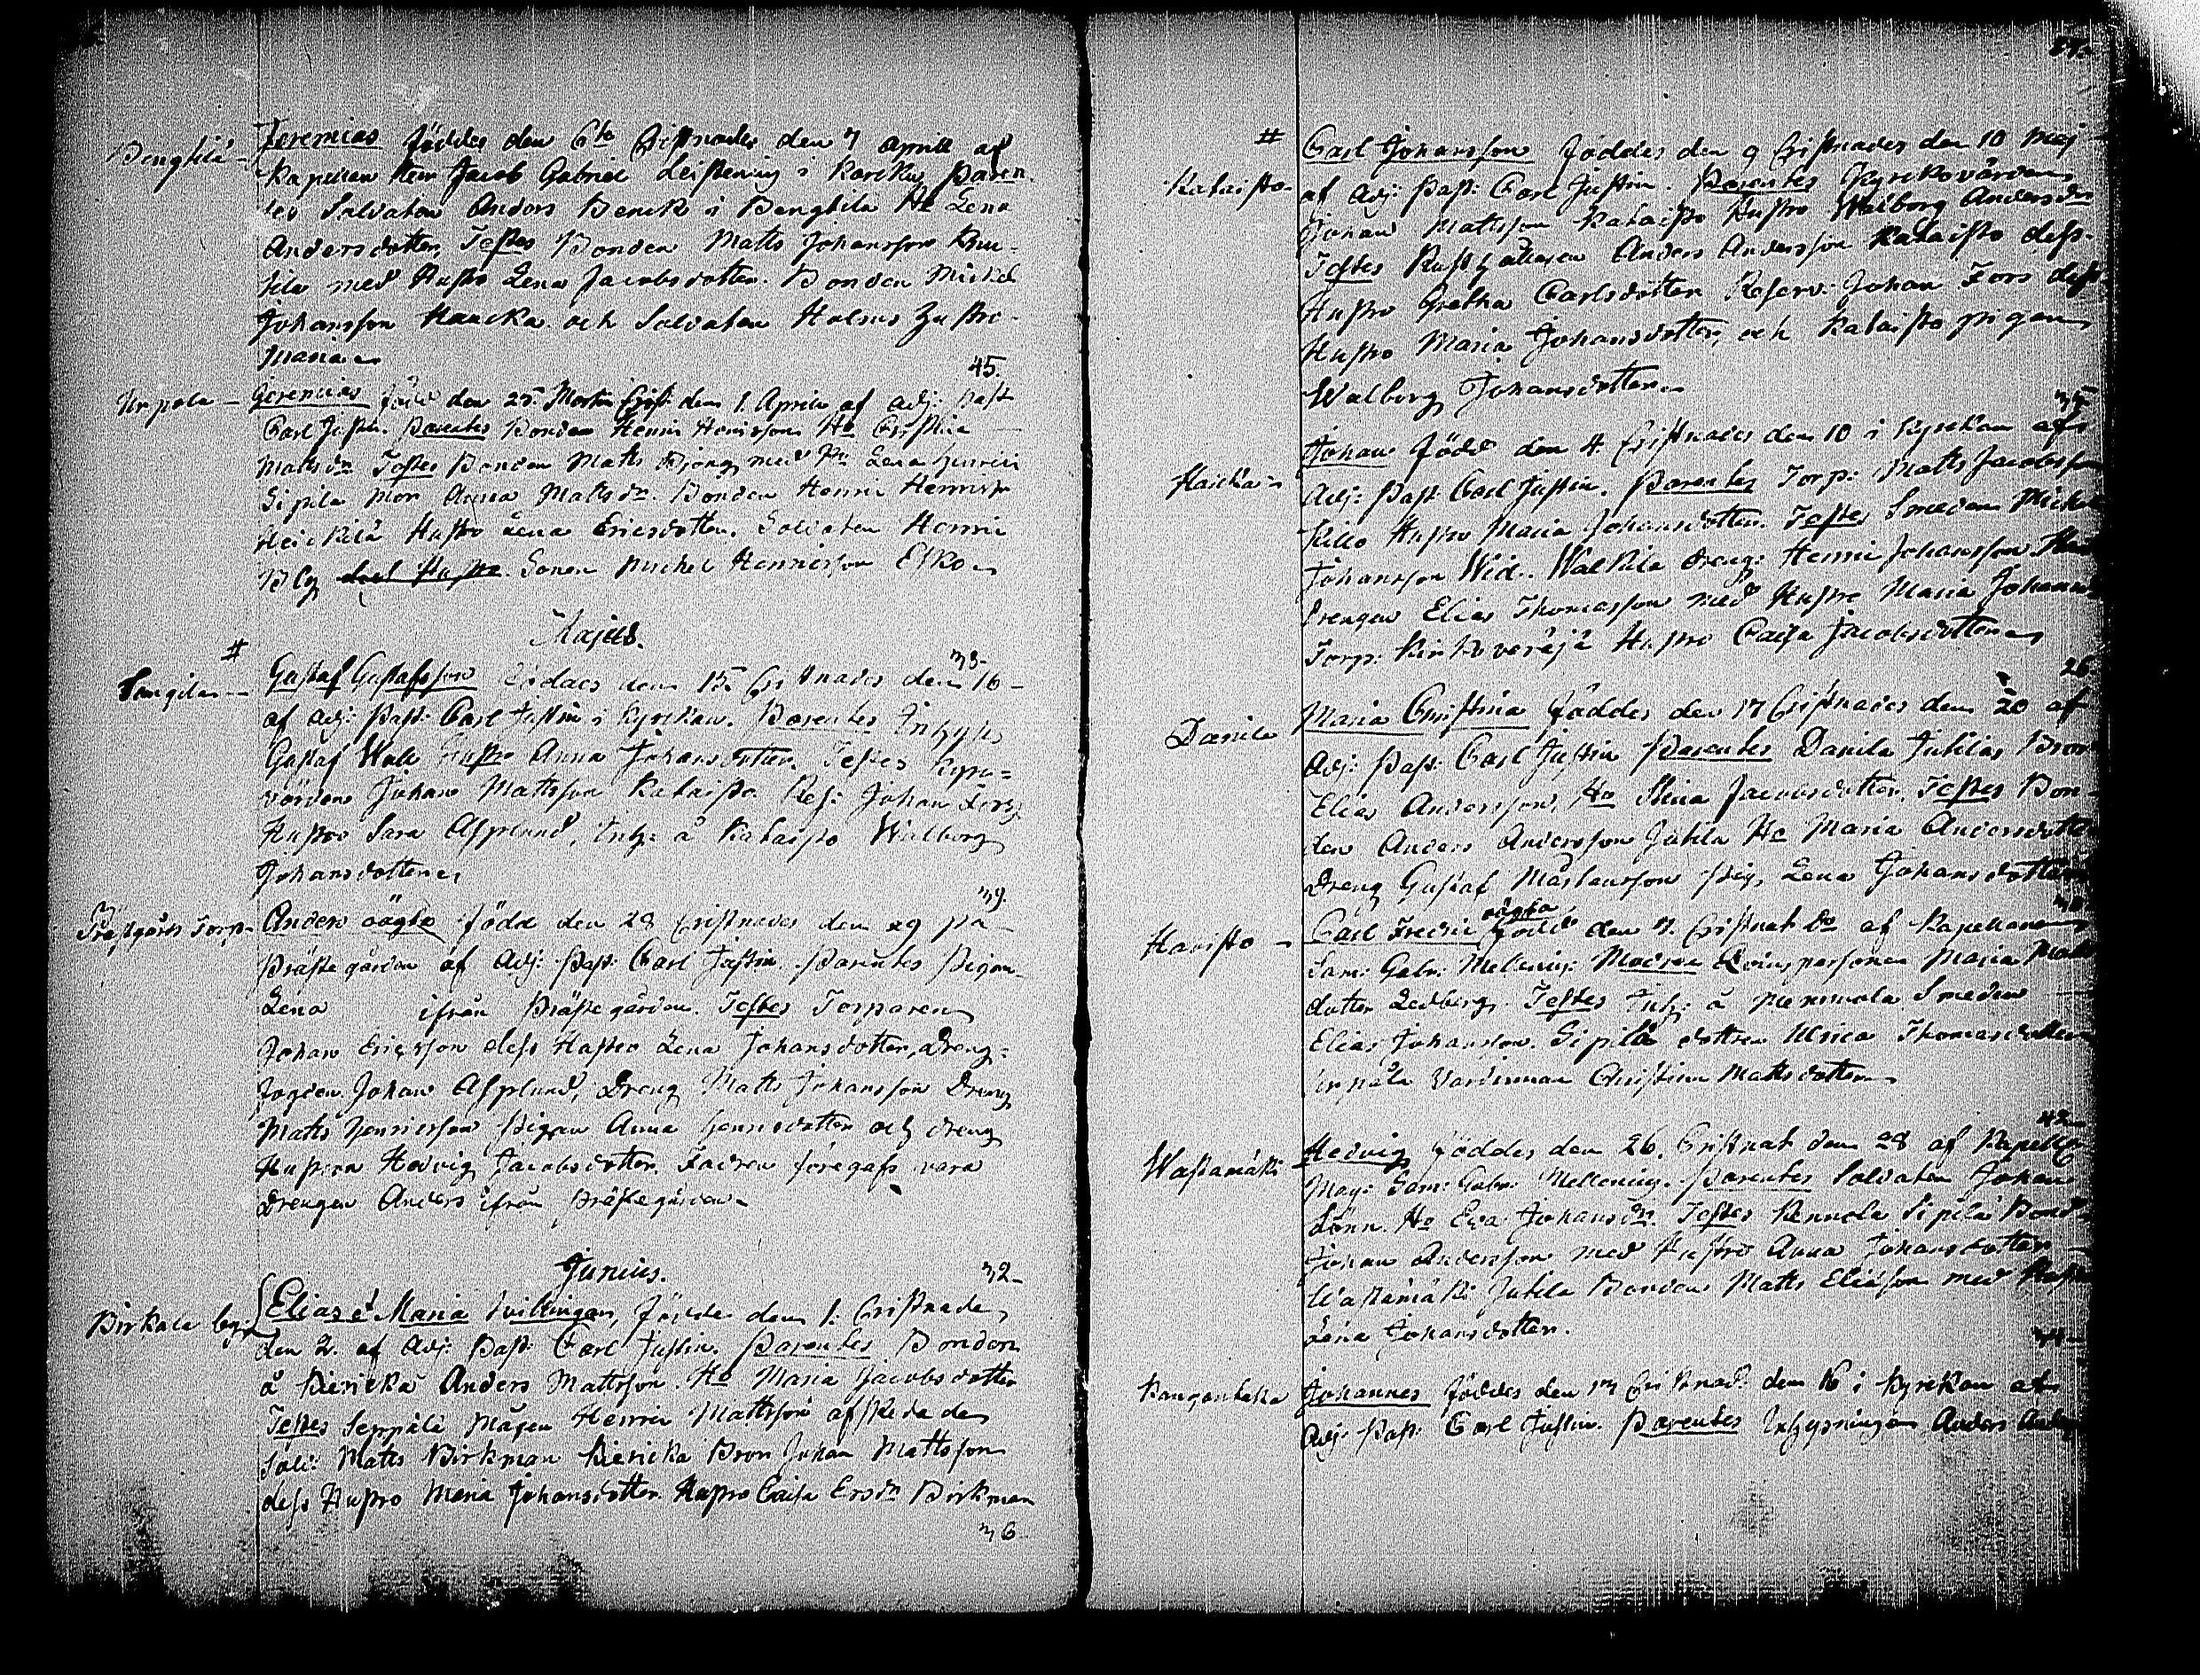 Benghilä – Jeremias föddes den 6te Cristnades den 7 Aprill af
Kapellan Herr Jacob Gabriel Leistenius i Karcku Paren-
tes Soldaten Anders Benck i Benghilä Ho Lena
Andersdotter, Testes Bonden Matts Johansson
tila med Hustro Lena Jacobsdotter. Bonden Michel
Johansson Haucka och Soldaten Holms Hustro
Maria
45.
Urpola – Geremias född den den 1. Aprill af Adj: Past
Carl Justin. Parentes Bonden Henric Henricsson Ho Cristin
Mattsdr Testes Bonden Matts med Lena
Sipila Mor Anna Mattsdr. Bonden Henric Henricss
Heickilä Hustro Lena Ericsdotter. Soldaten Henric
Blg dess Hustro. Sonen Michel Henricsson Esko
Majus.
#
33-
Gustaf Gustafsson föddes den 15. Cristnades den 16 –
af Adj: Past: Carl Justin i Kyrckan. Parentes Inhyses
Gustaf Wall Hustro Anna Johansdotter. Testes Kyrc=
värden Johan Mattsson Kataisto. Res: Johan Fors
Hustro Sara Asplund, Inh: å Kataisto Walborg
Johansdotter
39.
Prästgårds Torp- Anders oägta född den 28 Cristnades den 29 på
Prästegården af Adj: Past: Carl Justin. Parentes Pigan
Lena ifrån Prästegården. Testes Torparen
Johan Ericsson dess Hustro Lena Johansdotter, Dreng=
fogden Johan Asplund, Dreng Matts Johansson Dreng
Matts Henricsson Pigan Anna Henricsdotter och dreng
Hustrun Hedvig Jacobsdotter. Fadren föregafs vara
Drengen Anders ifrån Prästegården –
Junius.
32-
Birkala by: Elias et Maria tvillingar, födde den 1. Cristnade
den 2. af Adj: Past: Carl Justin. Parentes Bonden
å Kiericka Anders Mattsson. Ho Maria Jacobsdotter
Testes Seppälä Mågen Henric Mattsson afskedade
Sold: Matts Birkman Kiericka Bron Johan Mattsson
dess Hustro Maria Johansdotter. Hustro Caisa Ersdr Birkman
36
#
Kataisto- Carl Johansson föddes den 9 Cristnades den 10 Maj
af Adj: Past: Carl Justin. Parentes Kyrckovärden
Johan Mattsson Kataisto Hustro Walborg Andersdr
Testes Rusthållaren Anders Andersson Kataisto dess
Hustro Gretha Carlsdotter Reserv: Johan Fors dess
Hustro Maria Johansdotter, och Kataisto pigan
Walborg Johansdotter
Haicka Johan född den 4. Cristnades den 10 i Kyrckan af
Adj: Past: Carl Justin. Parentes Torp: Matts Jacobsson
Hustro Maria Johansdotter. Testes Smeden Michel
Johansson Wid. Walkila dreng: Henric Johansson
drengen Elias Thomasson med Hustro Maria Johans
Torp: Hustro Caisa Jacobsdotter
26
Danila Maria Christina föddes den 17 Cristnades den 20 af
Adj: Past: Carl Justin Parentes Danila Juhlias Bron
Elias Andersson, Ho Stina Jacobsdotter. Testes Bon-
den Anders Andersson Juhla Ho Maria Andersdotter
Dreng Gustaf Pig: Lena Johansdotter
Havisto – Carl Fredric oägta född den 7. Cristnat do af Kapellanen
Sam: Gabr: Mellenius: Modren Qvinspersonen Maria Matts
dotter Ledberg. Testes Inh: å Nemmola Smeden
Elias Johansson. Sipilä dottren Ulrica Thomasdotter
Urpåla Värdinnan Christina Mattsdotter
42-
Hedvig föddes den 26. Cristnat den 28 af Kapella
Mag: Sam: Gabr: Mellenius. Parentes Soldaten Johan
Lönn. Ho Eva Johansdr. Testes Kennola Sipilä Bond
Johan Andersson med Hustro Anna Johansdotter
Juhla Bonden Matts Eliasson med Hust
Lena Johansdotter.
Johannes föddes den Cristnad den 16 i Kyrckan af
Adj: Past: Carl Justin. Parentes Inhysningen Anders